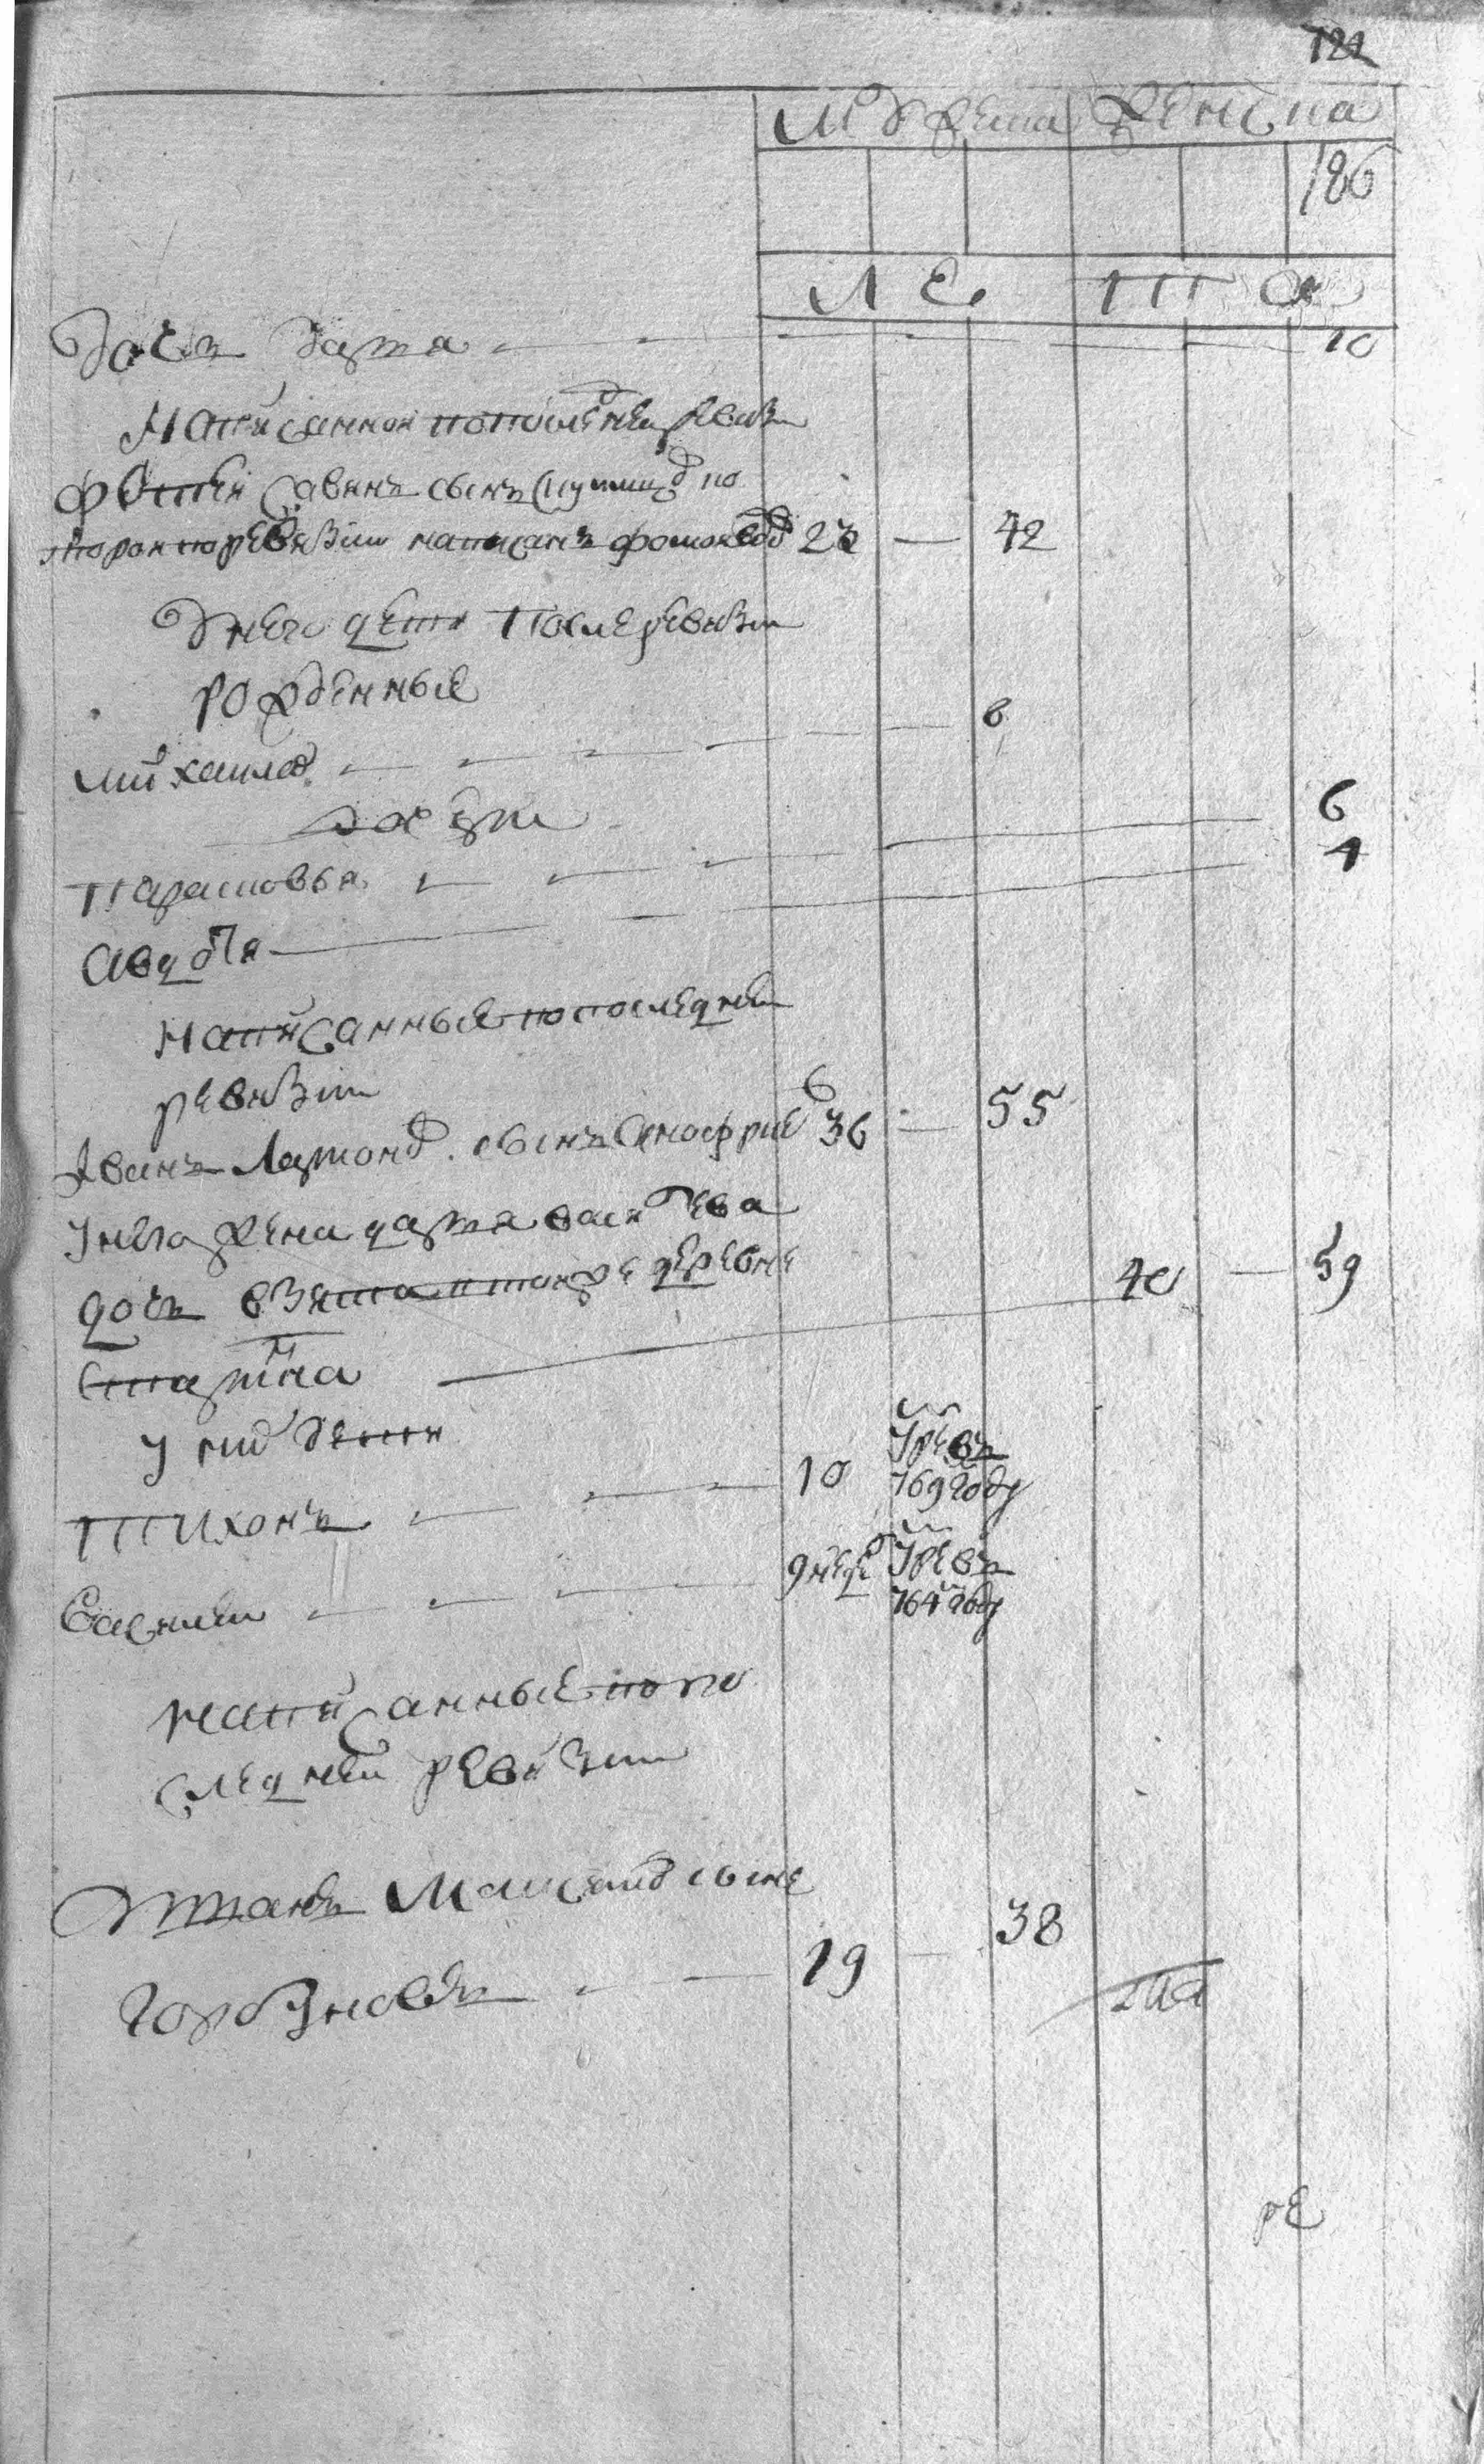 121
Мужеска Женска
186
Л Е Т А
Дочь Дарья 10
Написанной попоследнеи ревизи
Фотей Савинъ сынъ по
второй ревизии написанъ 23 — 42
У него дети после ревизи
рожденные
Михаила 8
дочери
Парасковья 6
Авдотья 4
Написанные попоследнеи
ревизии
Иванъ Ларионов сынъ Анофрие 36 — 55
У него жена Дарья Васильева
дочь взята тоиже деревне
40 — 59
У них дети
Тихонъ 10 Умре въ
769 году
Савелеи 9 недель Умре въ
764 году
написанные попо
следнеи ревизии
Устанъ сынъ
Горбуновъ 19 — 38
ре